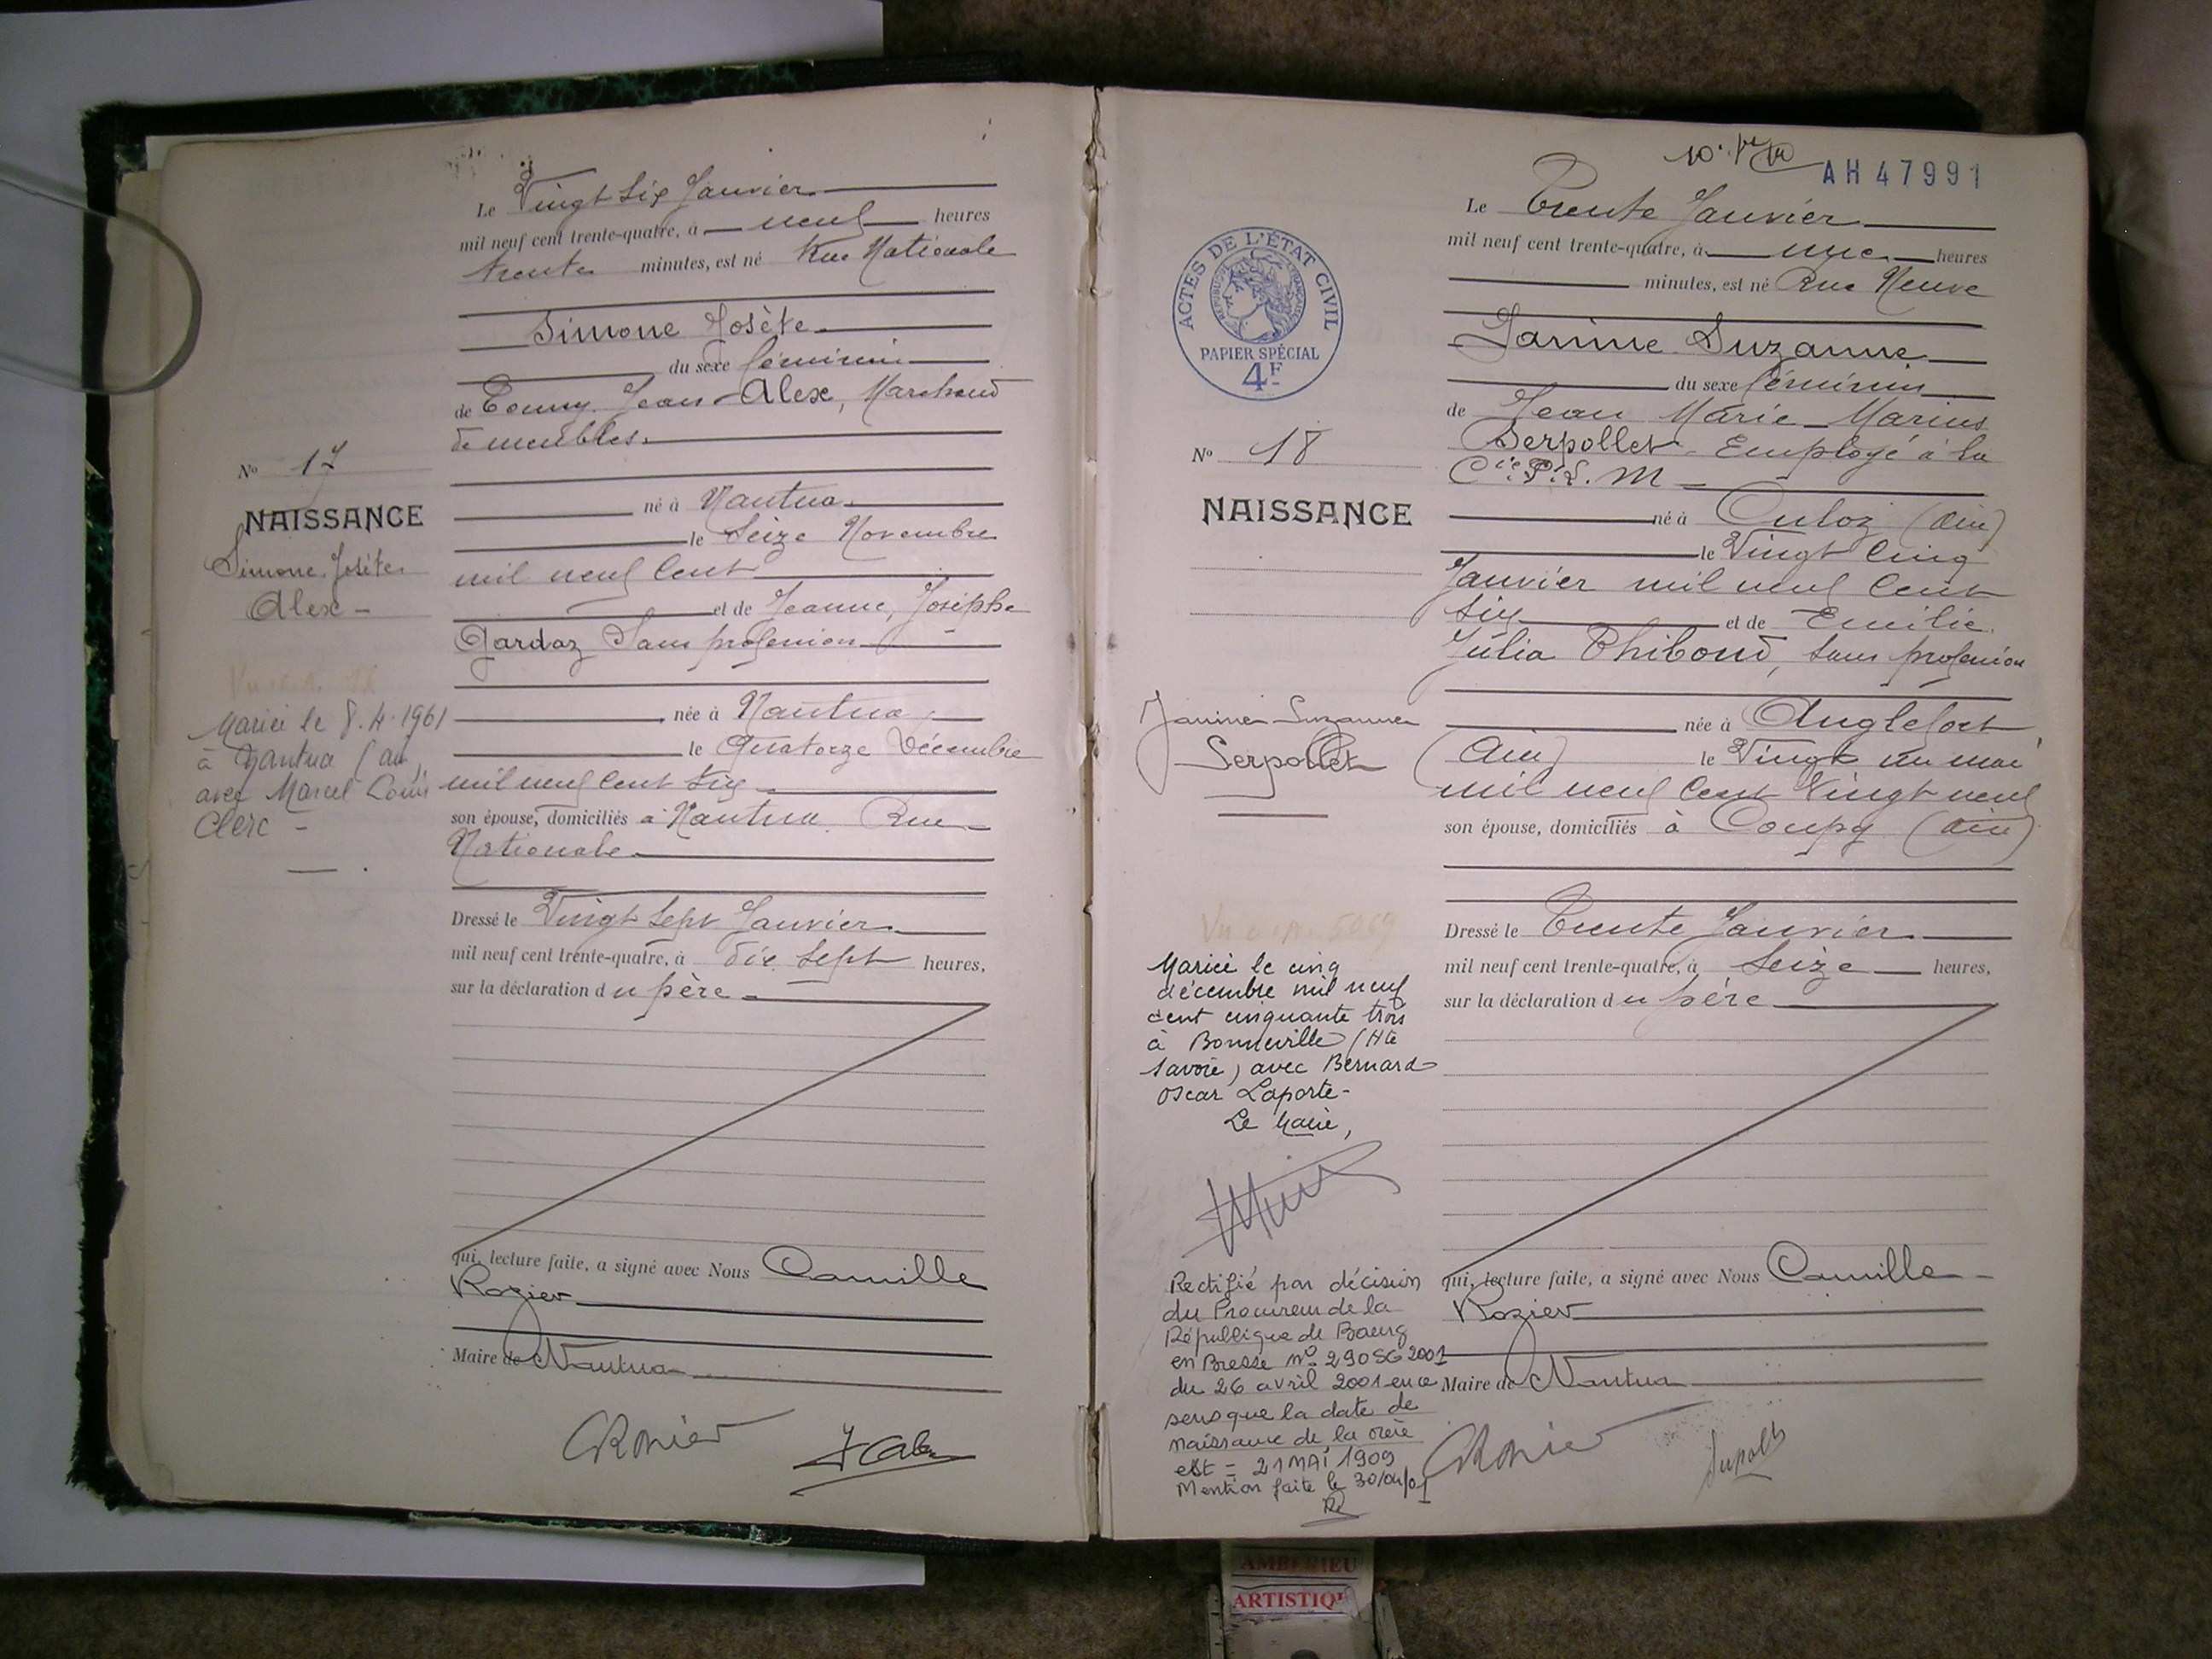 Le Vingt Six Janvier
mil neuf cent trente-quatre, à neuf heures
trente minutes, est né Rue Nationale
Simone Josète
du sexe féminin
de Jean Alex, Marchand
de meubles.
né à Nantua
le Seize Novembre
mil neuf Cent
et de Jeanne, Josèphe
Gardaz Sans profession
née à Nantua
le Quatorze Décembre
mil neuf Cent Six
son épouse, domiciliés à Nantua Rue
Nationale
Dressé le Vingt Sept Janvier
mil neuf cent trente-quatre, à dix Sept heures,
sur la déclaration du père
qui, lecture faite, a signé avec Nous Camille
Rozier
Maire de Nantua
CRozier
J Alex
No 17
NAISSANCE
Simone Josète
Alex -
Mariée le 8.4.1961
à Nantua (Ain)
avec Marcel Louis
Clerc -
AH 47991
Le Trente Janvier
mil neuf cent trente-quatre, à une heures
minutes, est né Rue Neuve
Janine Suzanne
du sexe féminin
de Jean Marie Marius
Serpollet - Employé à la
Cie. P. L. M
né à Culoz (Ain)
le Vingt Cinq
Janvier mil neuf Cent
Six et de Emilie
Julia Thiboud, Sans profession
née à Anglefort
(Ain) le Vingt un mai
mil neuf Cent Vingt neuf
son épouse, domiciliés à Coupy (Ain)
Dressé le Trente Janvier
mil neuf cent trente-quatre, à Seize heures,
sur la déclaration du père
qui, lecture faite, a signé avec Nous Camille
Rozier
Maire de Nantua
CRozier
ACTES DE L'ÉTAT CIVIL
RÉPUBLIQUE FRANÇAISE
PAPIER SPÉCIAL
4F
No 18
NAISSANCE
Janine Suzanne
Serpollet
Mariée le cinq
décembre mil neuf
cent cinquante trois
à Bonneville (Hte
Savoie) avec Bernard
Oscar Laporte -
Le Maire,
Rectifié par décision
du Procureur de la
République de Bourg
en Bresse No 290SG2001
du 26 avril 2001 en ce
sens que la date de
naissance de la mère
est = 21 MAI 1909
Mention faite le 30/04/01
AMBERIEU
ARTISTIQU